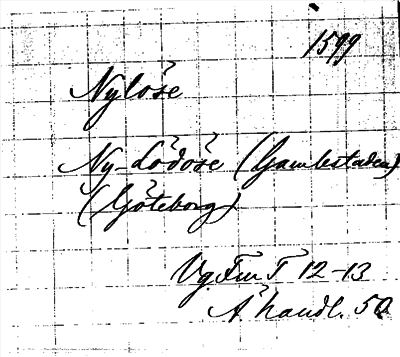 1599
Nylöse
Ny-Lödöse (Gamlestaden)
(Göteborg)
Vg Fm T 12-13
Å handl. 50